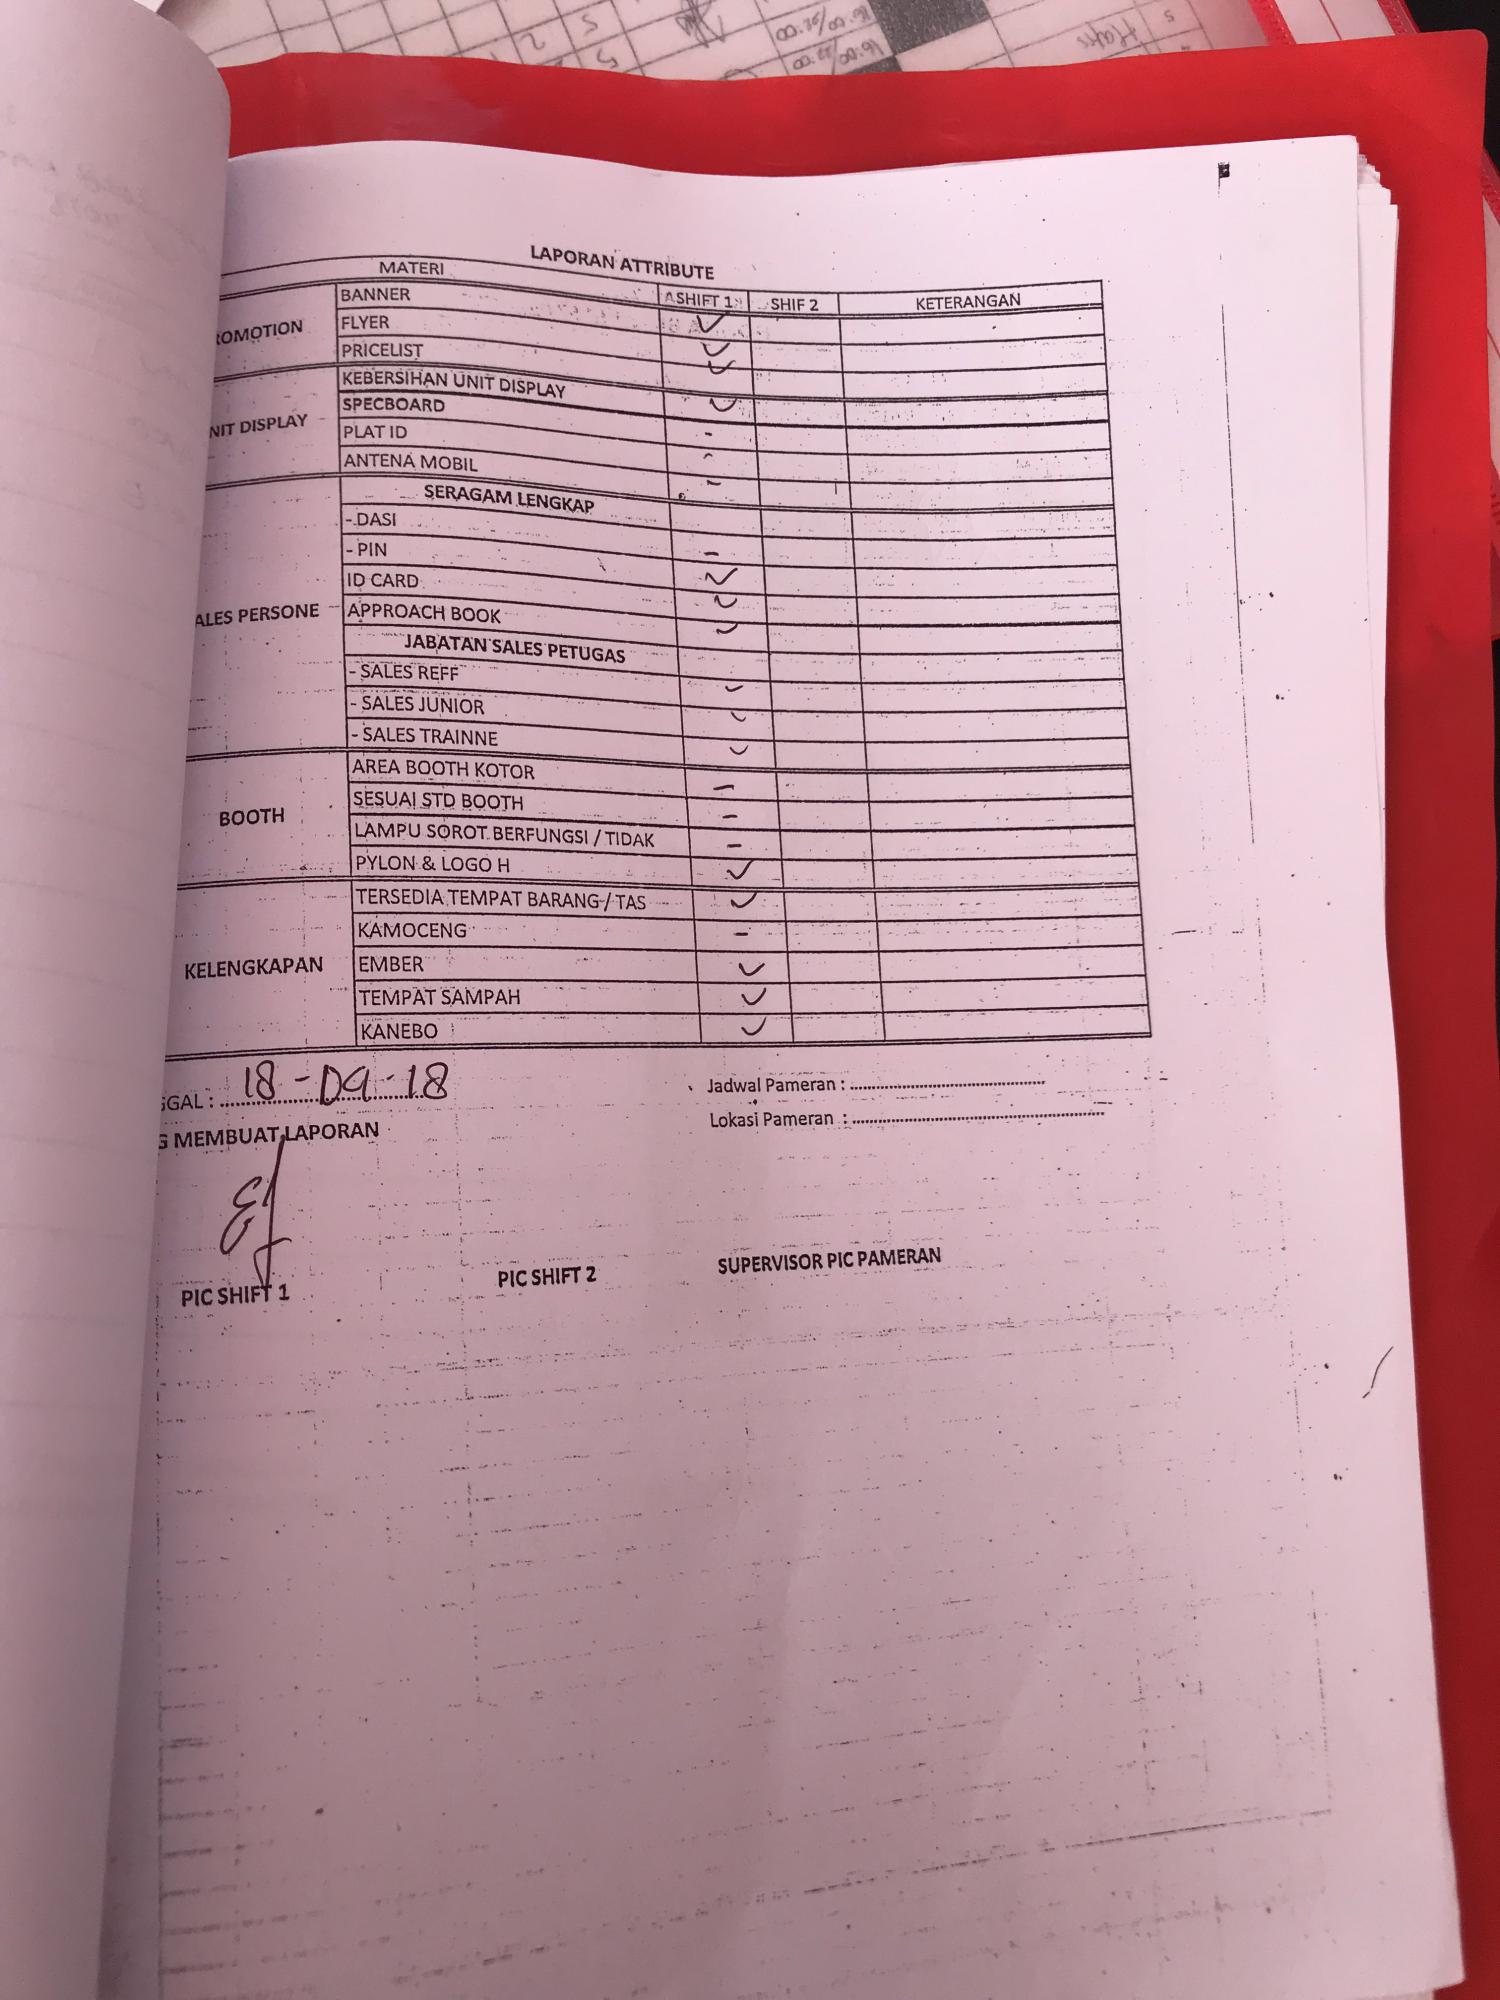 LAPORAN ATTRIBUTE
MATERI ASHIFT 1 SHIF 2 KETERANGAN
OMOTION BANNER ✓
FLYER ✓
PRICELIST ✓
NIT DISPLAY KEBERSIHAN UNIT DISPLAY ✓
SPECBOARD -
PLAT ID -
ANTENA MOBIL -
ALES PERSONE SERAGAM LENGKAP
- DASI -
- PIN ✓
ID CARD ✓
APPROACH BOOK ✓
JABATAN SALES PETUGAS
- SALES REFF ✓
- SALES JUNIOR ✓
- SALES TRAINNE ✓
BOOTH AREA BOOTH KOTOR -
SESUAI STD BOOTH -
LAMPU SOROT BERFUNGSI / TIDAK -
PYLON & LOGO H ✓
KELENGKAPAN TERSEDIA TEMPAT BARANG / TAS ✓
KAMOCENG -
EMBER ✓
TEMPAT SAMPAH ✓
KANEBO ✓
GGAL : 18 - 09 - 18
Jadwal Pameran :
G MEMBUAT LAPORAN
Lokasi Pameran :
PIC SHIFT 1 PIC SHIFT 2 SUPERVISOR PIC PAMERAN